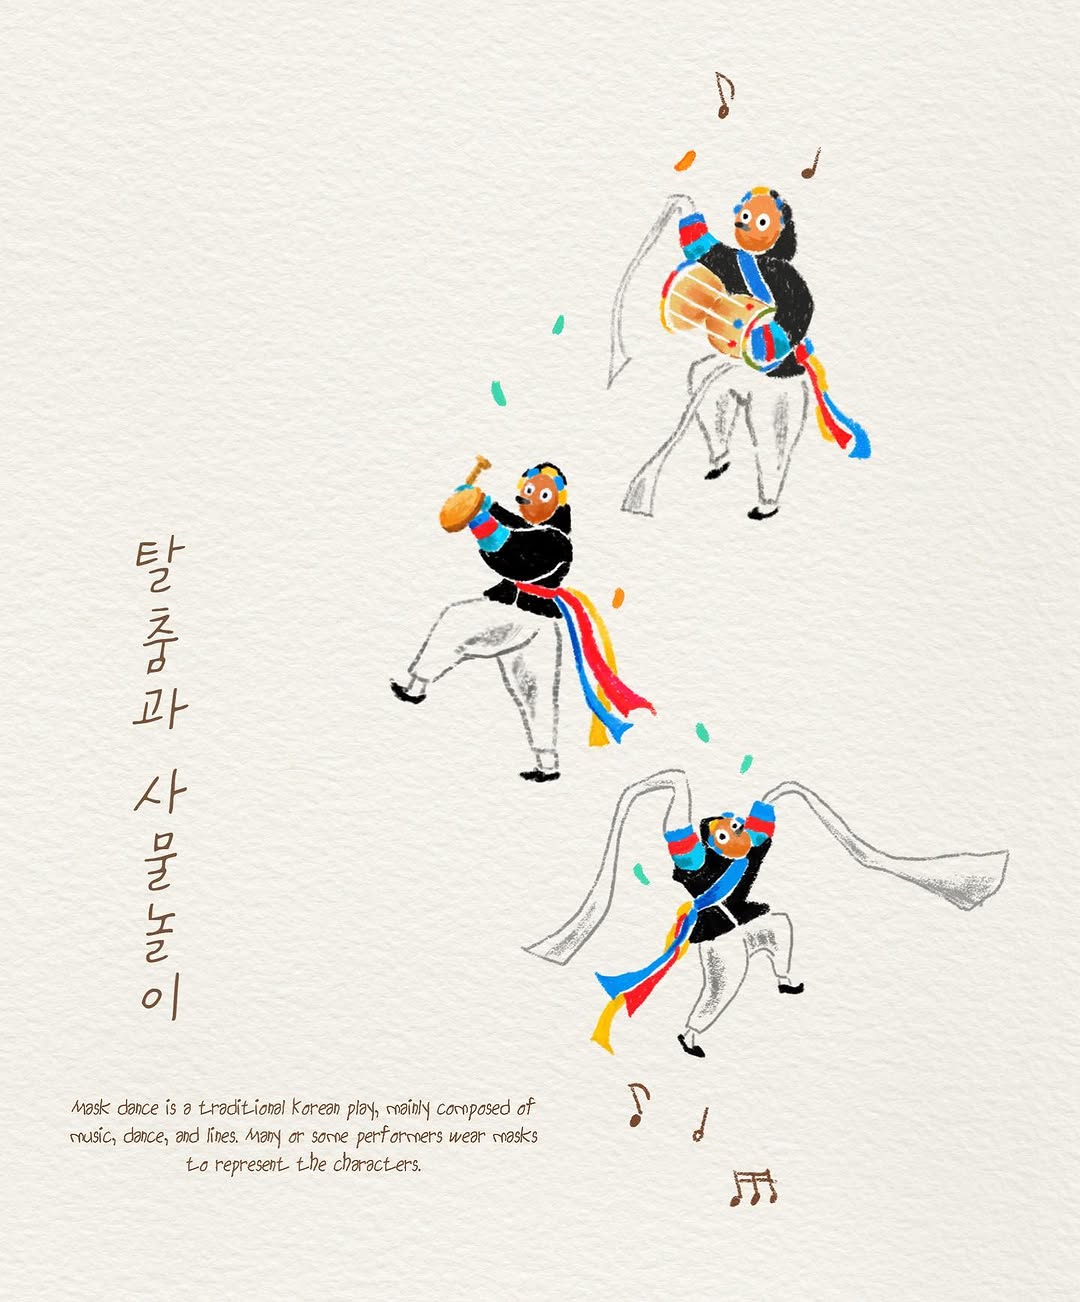 탈춤과 사물놀이
Mask dance is a traditional Korean play, mainly composed of
music, dance, and lines. Many or some performers wear masks
to represent the characters.